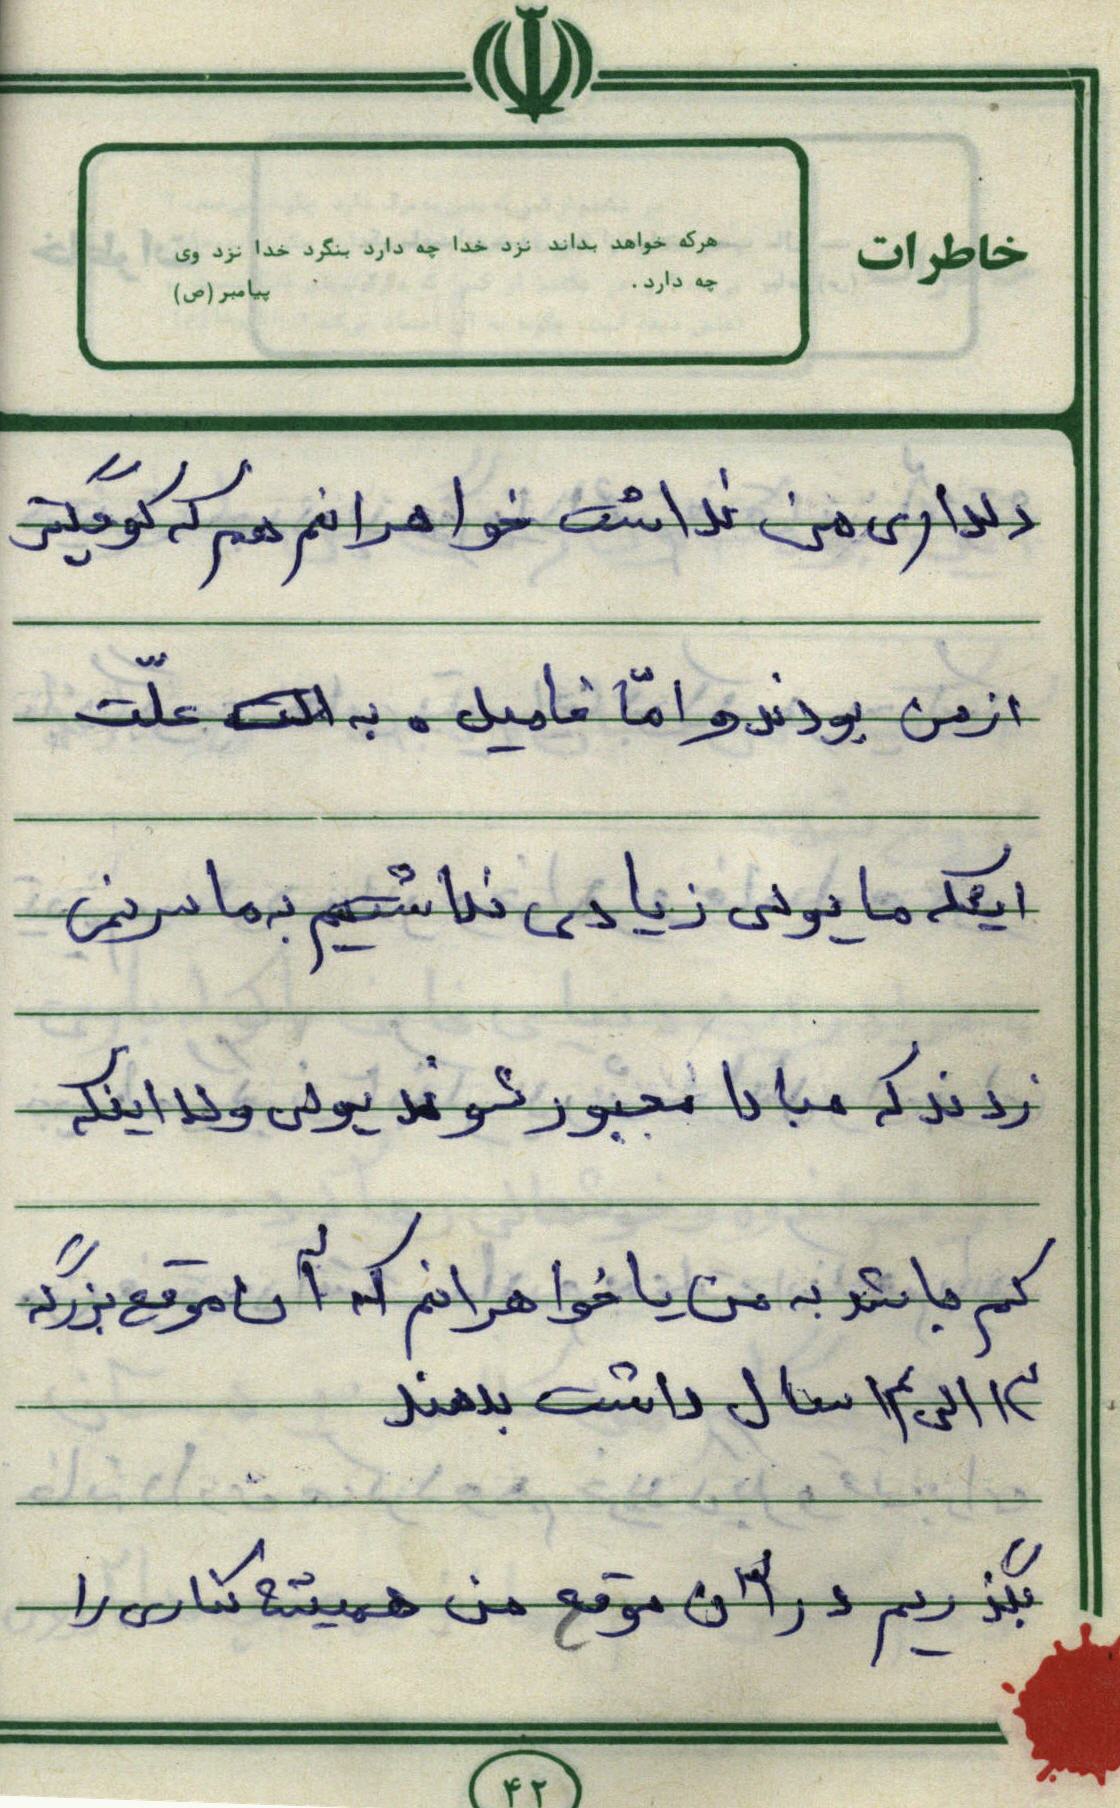 خاطرات
هرکه خواهد بداند نزد خدا چه دارد بنگرد خدا نزد وی
چه دارد.
پیامبر (ص)
دلداری من نداشت خواهرانم هم که کوچکتر
از من بودند و امّا فامیل ، به علّت
اینکه ما پولی زیادی نداشتیم به ما سر نمی
زدند که مبادا مجبور شوند پولی ولد اینکه
کم باشد به من یا خواهرانم که آن موقع بزرگه
۱۳ الی ۱۴ سال داشت بدهند
بگذریم در آن موقع من همیشه کناری را
۴۲